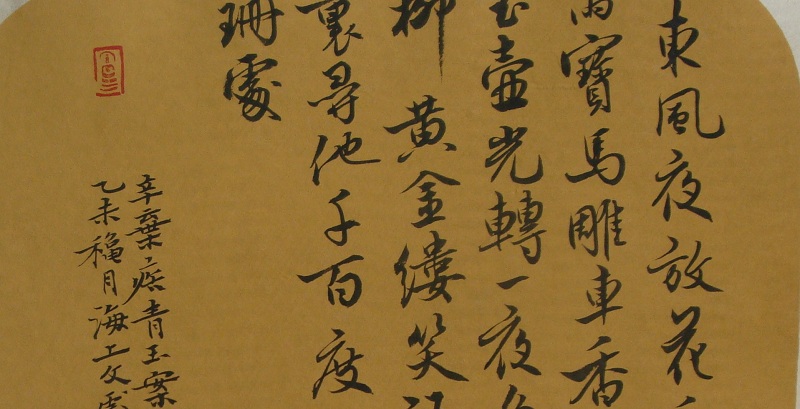 東風夜放花
雨寶馬雕車香
玉壺光轉一夜
柳黄金縷笑
裏尋他千百度
珊處
辛棄疾青玉案
乙未穐月海上文